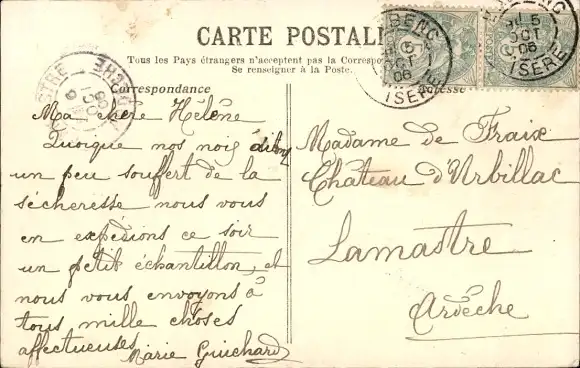 CARTE POSTALE
Tous les Pays étrangers n'acceptent pas la Correspon
Se renseigner à la Poste.
Correspondance
Adresse
5
OCT
06
ISÈRE
5
OCT
06
ISÈRE
Ma chère Hélène
Quoique nos noix
un peu souffert de la
sécheresse nous vous
en expédions ce soir
un petit échantillon, et
nous vous envoyons à
tous mille choses
affectueuses
Marie Guichard
Madame de Fraix
Château d'Urbillac
Lamastre
Ardèche